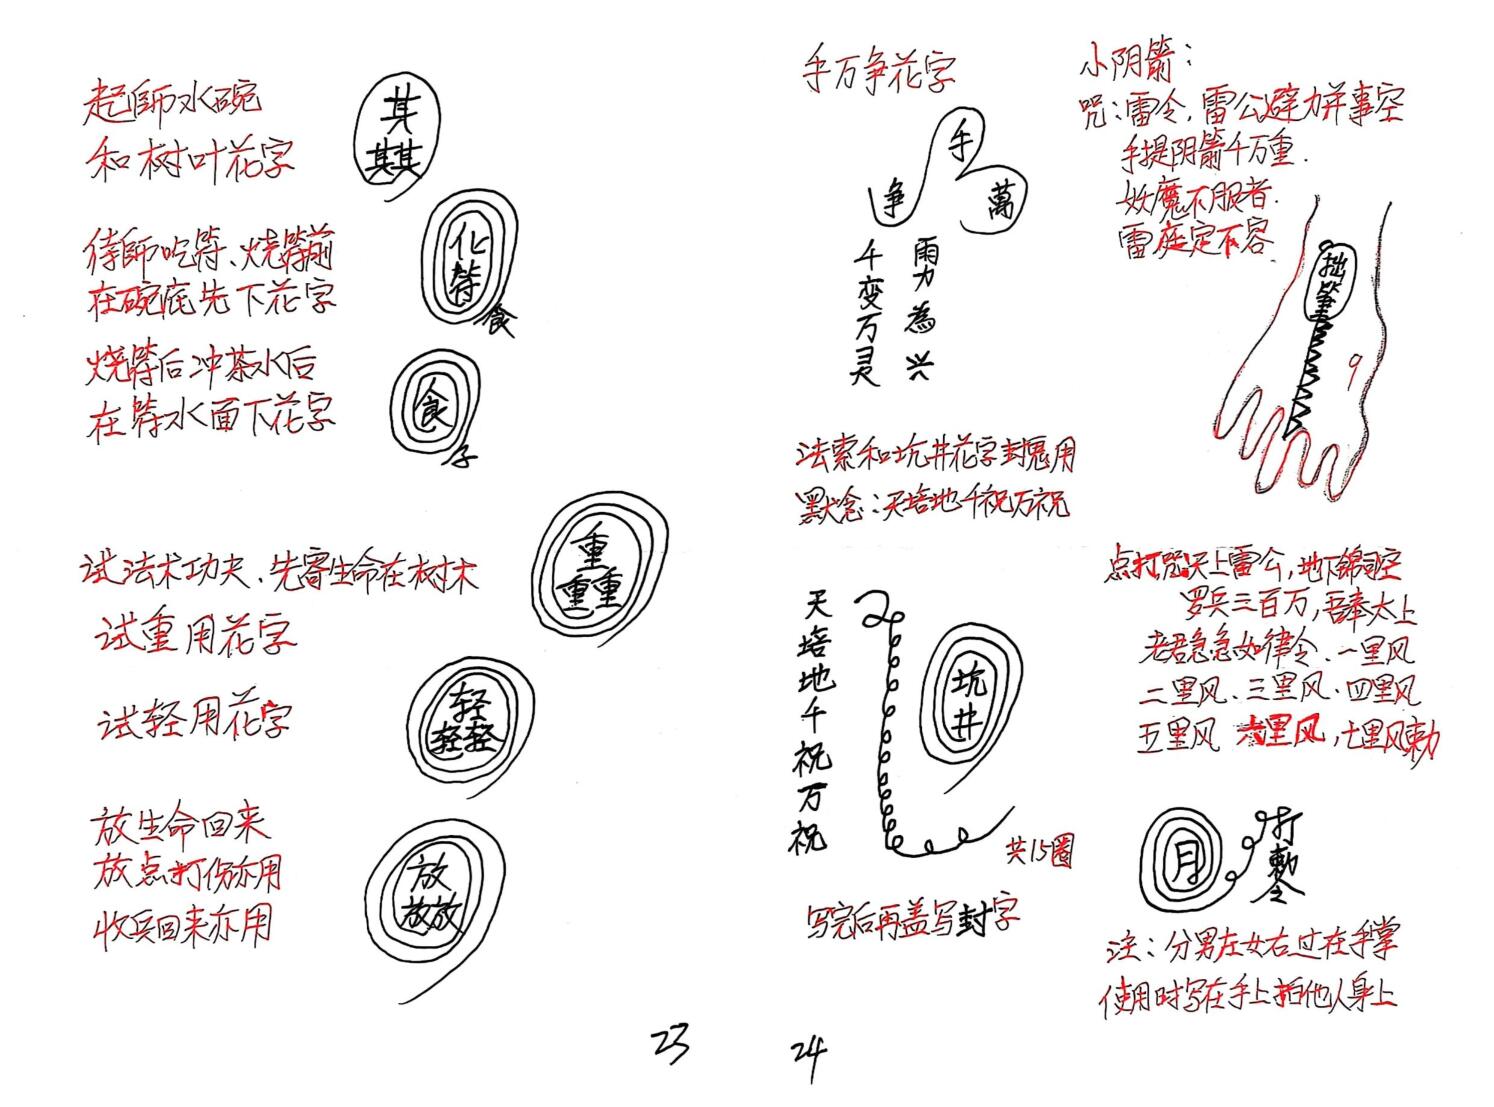 起師水碗
和树叶花字
其
其其
待師吃符、烧符前
在碗底先下花字
化
符
食
烧符后冲茶水后
在符水面下花字
食
子
试法术功夫、先寄生命在树木
重
重重
试重用花字
试轻用花字
轻
轻轻
放生命回来
放点打伤亦用
收兵回来亦用
放
放放
23
手万争花字
手
争
萬
千变万灵
雨力為兴
法索和坑井花字封鬼用
默念:天培地千祝万祝
天培地千祝万祝
坑
井
共15圈
写完后再盖写封字
24
小阴箭:
咒:雷令,雷公避力并事空
手提阴箭千万重.
妖魔不服者.
雷庭定不容.
拙
箭
9
点打咒天上雷公,地下錦司空
罗兵三百万,吾奉太上
老君急急如律令、一里风
二里风、三里风、四里风
五里风 六里风,七里风勅
月
打勅令
注:分男左女右过在手掌
使用时写在手上拍他人身上